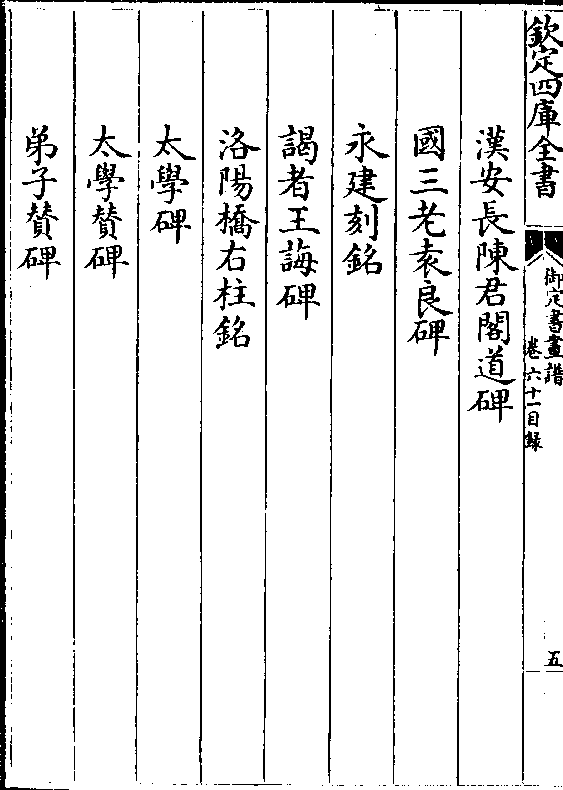 欽定四庫全書
御定書畫譜
卷六十一目録
五
漢安長陳君閣道碑
國三老袁良碑
永建刻銘
謁者王誨碑
洛陽橋右柱銘
太學碑
太學贊碑
弟子贊碑